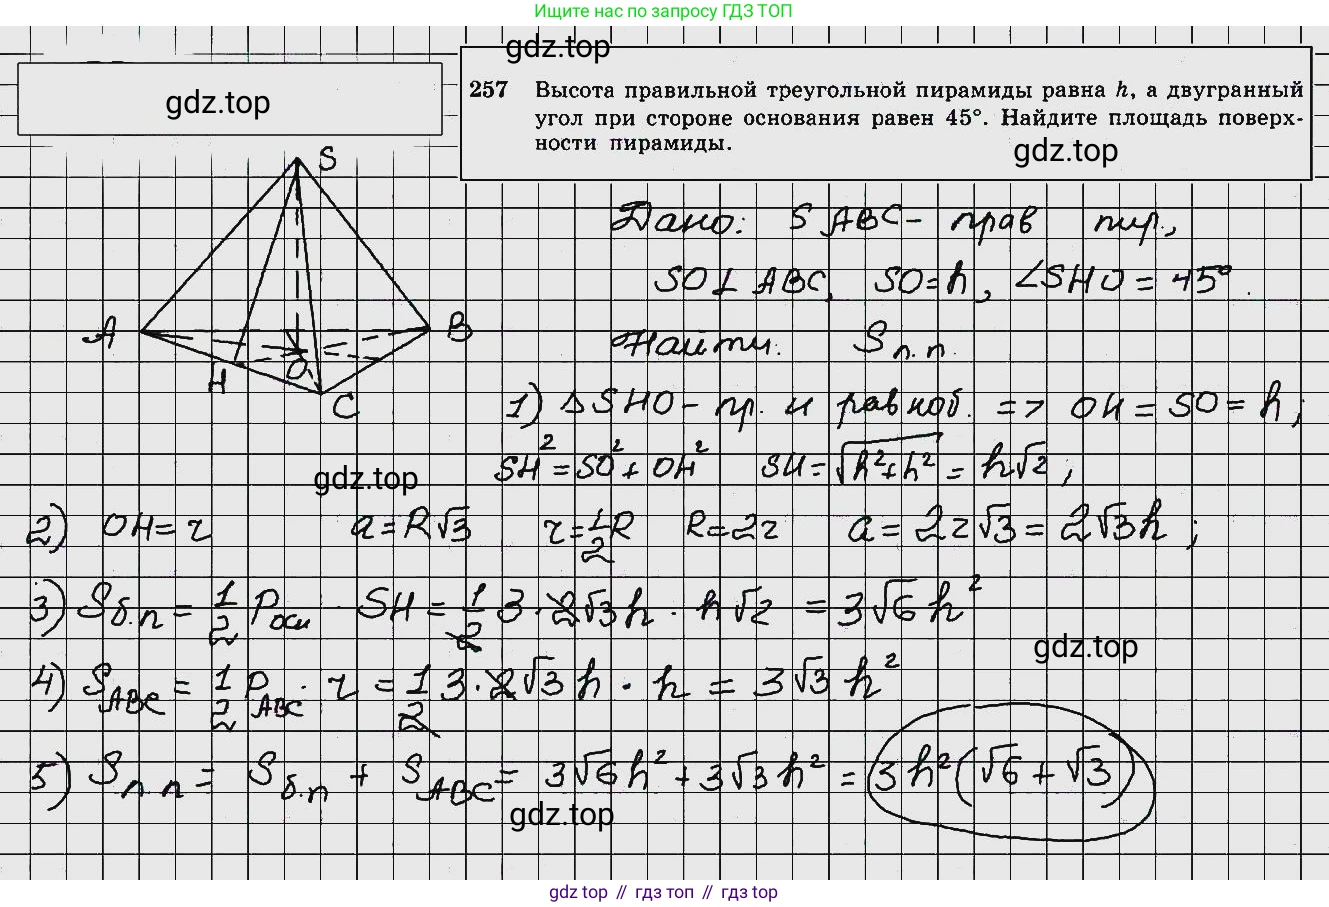 Ищите нас по запросу ГДЗ ТОП
gdz.top
gdz.top
257 Высота правильной треугольной пирамиды равна h, а двугранный
угол при стороне основания равен 45°. Найдите площадь поверх-
ности пирамиды.
gdz.top
S
A
B
H
O
C
Дано: SABC - прав пир.,
SO⊥ABC, SO=h, ∠SHO=45°.
Найти: Sп.п.
1) ΔSHO - пр. и равноб. => OH=SO=h;
SH²=SO²+OH² SH=√(h²+h²)=h√2;
gdz.top
2) OH=r a=R√3 r=1/2R R=2r a=2r√3=2√3h;
3) Sб.п=1/2 Pосн · SH=1/2 3·2√3h·h√2=3√6h²
gdz.top
4) SABC=1/2 PABC·r=1/2 3·2√3h·h=3√3h²
5) Sп.п=Sб.п+SABC=3√6h²+3√3h²=3h²(√6+√3)
gdz.top
gdz top // гдз топ // gdz top